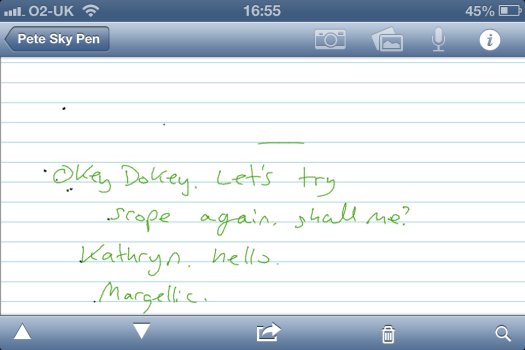 O2-UK 16:55 45%
Pete Sky Pen
Okey Dokey. Let's try
scope again, shall me?
Kathryn. hello.
Margellic.